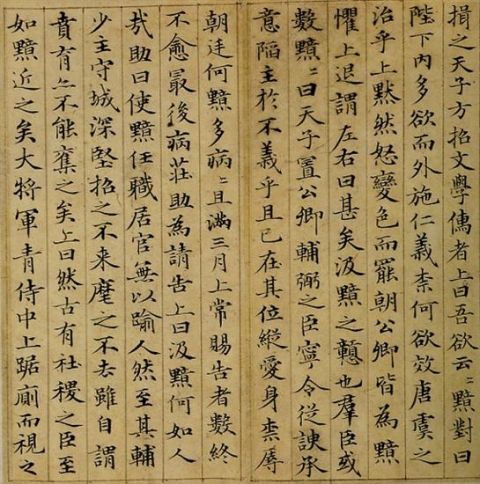 揖之天子方招文學儒者上曰吾欲云〻黯對曰
陛下內多欲而外施仁義柰何欲效唐虞之
治乎上黙然怒變色而罷朝公卿皆為黯
懼上退謂左右曰甚矣汲黯之戇也羣臣或
數黯〻曰天子置公卿輔弼之臣寧令從諛承
意陷主於不義乎且已在其位縱愛身柰辱
朝廷何黯多病〻且滿三月上常賜告者數終
不愈最後病莊助為請告上曰汲黯何如人
哉助曰使黯任職居官無以踰人然至其輔
少主守城深堅招之不来麾之不去雖自謂
賁育亦不能奪之矣上曰然古有社稷之臣至
如黯近之矣大將軍青侍中上踞廁而視之